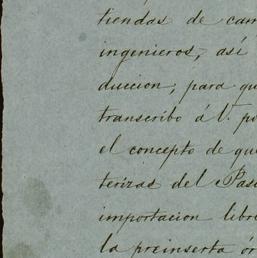 tiendas de cam
ingenieros, así
duccion, para qu
transcribo á V. pa
el concepto de que
terizas del Paso
importacion libre
la preinserta ór